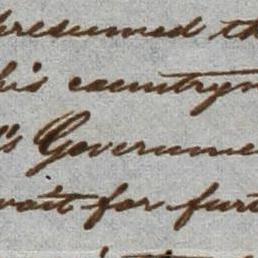 presumed th
his countrym
's Governme
wait for furt